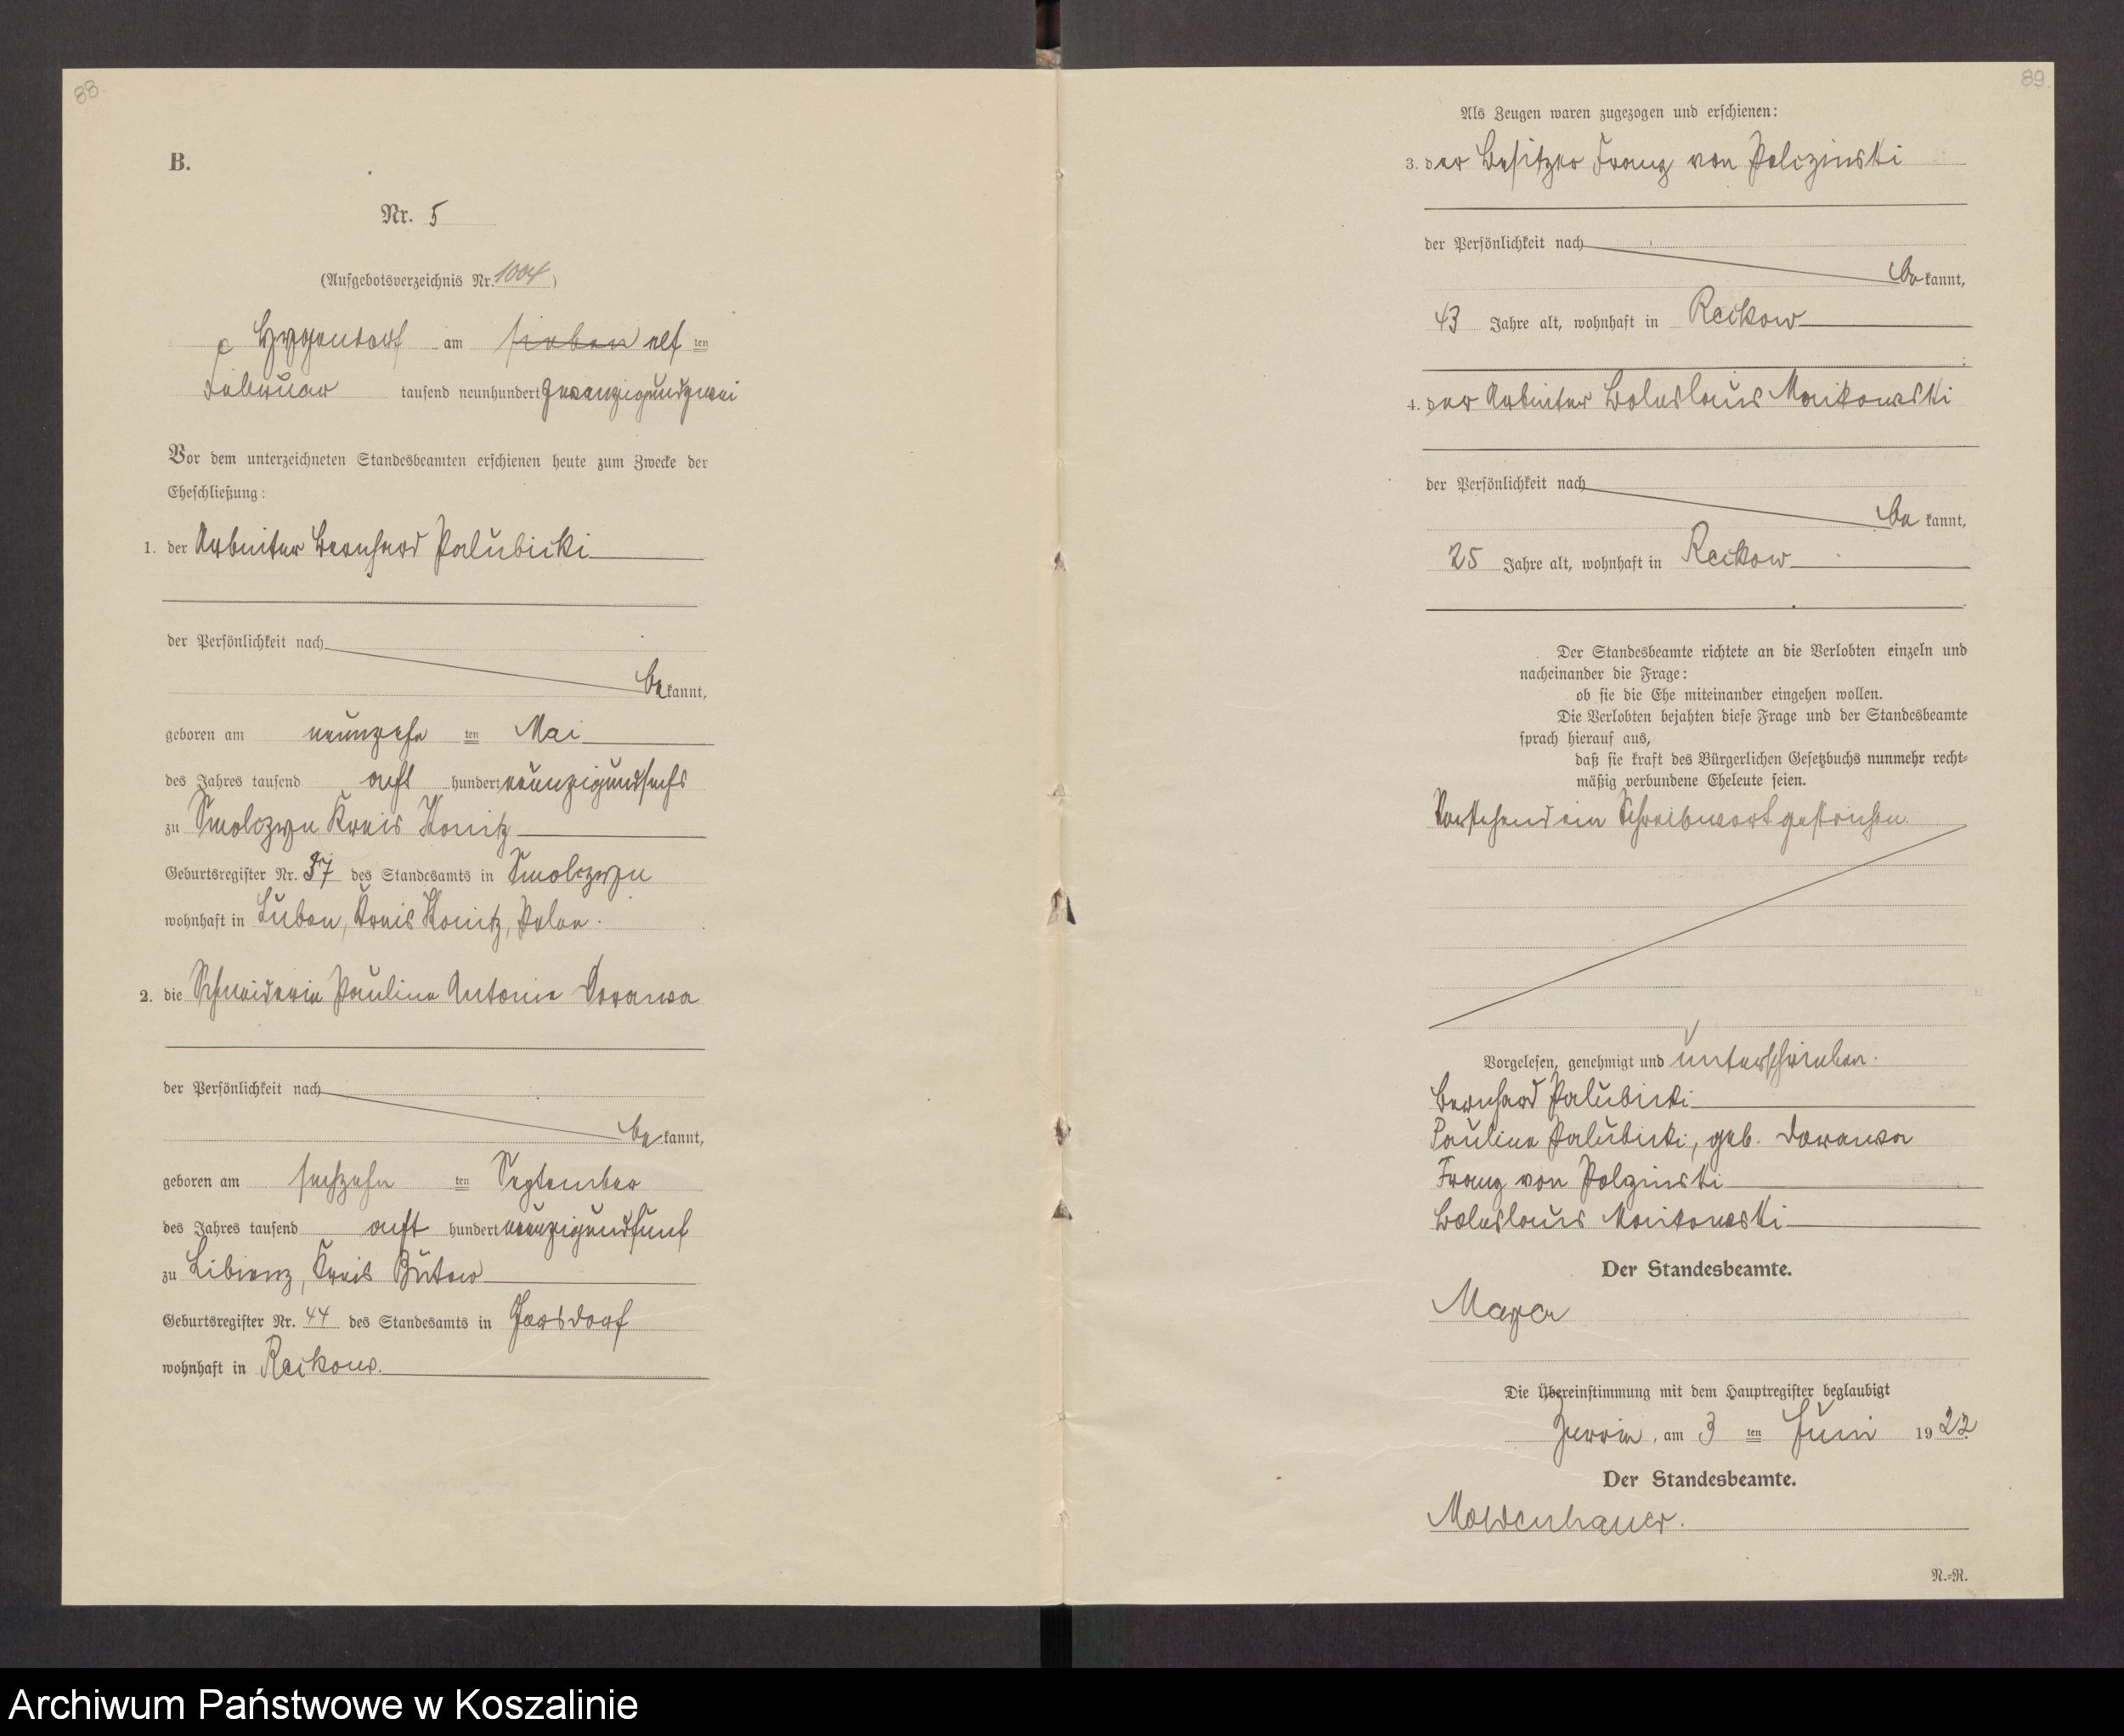 88
B.
Nr. 5
(Aufgebotsverzeichnis Nr. 1004)
am sieben elf ten
Februar tausend neunhundert zwanzigundzwei
Vor dem unterzeichneten Standesbeamten erschienen heute zum Zwecke der
Eheschließung:
1. der Arbeiter Bernhard Palubicki
der Persönlichkeit nach
be kannt,
geboren am neunzehn ten Mai
des Jahres tausend acht hundert neunzigundsechs
zu Smolczyn Kreis Konitz
Geburtsregister Nr. 37 des Standesamts in Smolczyn
wohnhaft in Lubon, Kreis Konitz, Polen.
2. die Schneiderin Pauline Antonie Dorawa
der Persönlichkeit nach
be kannt,
geboren am sechzehn ten September
des Jahres tausend acht hundert neunzigundfünf
zu Libienz, Kreis Bütow
Geburtsregister Nr. 44 des Standesamts in
wohnhaft in Reckow.
89.
Als Zeugen waren zugezogen und erschienen:
3. der Besitzer Franz von Polczinski
der Persönlichkeit nach
be kannt,
43 Jahre alt, wohnhaft in Reckow
4. der Arbeiter Boleslaus Monkowski
der Persönlichkeit nach
be kannt,
25 Jahre alt, wohnhaft in Reckow
Der Standesbeamte richtete an die Verlobten einzeln und
nacheinander die Frage:
ob sie die Ehe miteinander eingehen wollen.
Die Verlobten bejahten diese Frage und der Standesbeamte
sprach hierauf aus,
daß sie kraft des Bürgerlichen Gesetzbuchs nunmehr recht-
mäßig verbundene Eheleute seien.
Vorstehend ein Schreibwort gestrichen.
Vorgelesen, genehmigt und unterschrieben.
Bernhard Palubicki
Pauline Palubicki, geb. Dorawa
Franz von Polzinski
Boleslaus Monkowski
Der Standesbeamte.
Mayer
Die Übereinstimmung mit dem Hauptregister beglaubigt
Zerrin, am 3 ten Juni 1922
Der Standesbeamte.
Moldenhauer.
N.-R.
Archiwum Państwowe w Koszalinie